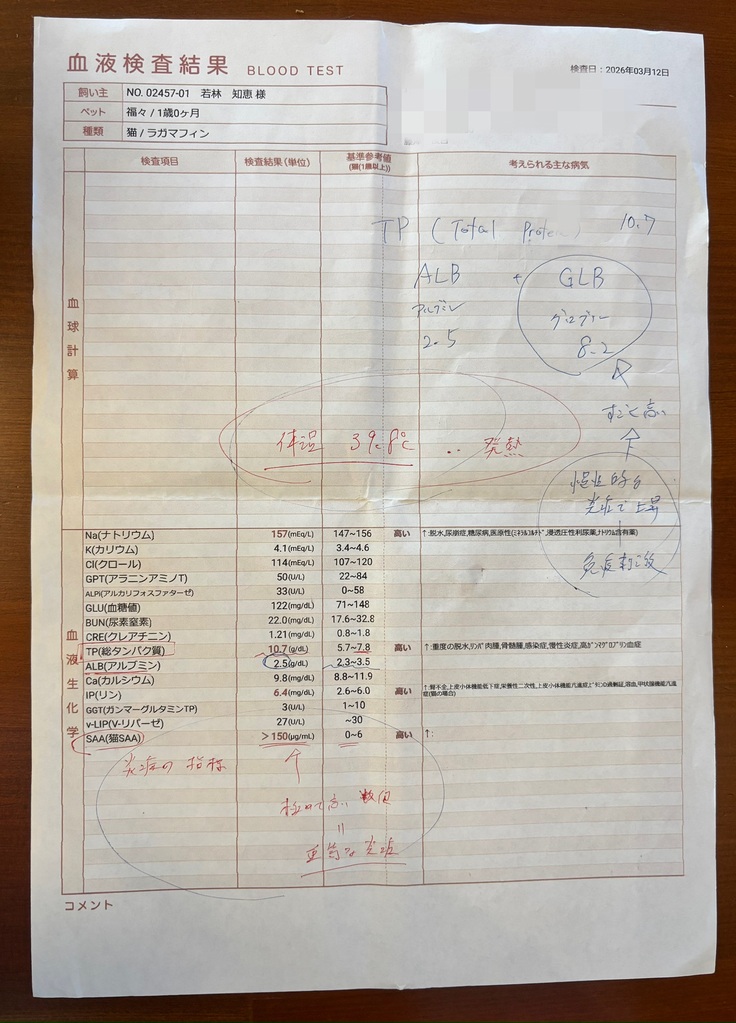 血液検査結果 BLOOD TEST
検査日：2026年03月12日
飼い主 NO. 02457-01 若林 知恵 様
ペット 福々 / 1歳0ヶ月
種類 猫 / ラガマフィン
検査項目 検査結果（単位） 基準参考値 (猫(1歳以上)) 考えられる主な病気
血球計算
TP (Total Prote ) 10.7
ALB + GLB
アルブミン グロブリン
2.5 8.2
すごく高い
体温 39.8℃ ‥ 発熱
慢性的な
炎症で上昇
免疫刺激
血液生化学
Na(ナトリウム) 157(mEq/L) 147~156 高い ↑:脱水,尿崩症,糖尿病,医原性(ﾐﾈﾗﾙｺﾙﾁｺｲﾄﾞ,浸透圧性利尿薬,ﾅﾄﾘｳﾑ含有薬)
K(カリウム) 4.1(mEq/L) 3.4~4.6
Cl(クロール) 114(mEq/L) 107~120
GPT(アラニンアミノT) 50(U/L) 22~84
ALP(アルカリフォスファターゼ) 33(U/L) 0~58
GLU(血糖値) 122(mg/dL) 71~148
BUN(尿素窒素) 22.0(mg/dL) 17.6~32.8
CRE(クレアチニン) 1.21(mg/dL) 0.8~1.8
TP(総タンパク質) 10.7(g/dL) 5.7~7.8 高い ↑:重度の脱水,リンパ肉腫,骨髄腫,感染症,慢性炎症,高ｶﾞﾝﾏｸﾞﾛﾌﾞﾘﾝ血症
ALB(アルブミン) 2.5(g/dL) 2.3~3.5
Ca(カルシウム) 9.8(mg/dL) 8.8~11.9
IP(リン) 6.4(mg/dL) 2.6~6.0 高い ↑:腎不全,上皮小体機能低下症,栄養性二次性,上皮小体機能亢進症,ﾋﾞﾀﾐﾝD過剰症,溶血,甲状腺機能亢進症(猫の場合)
GGT(ガンマーグルタミンTP) 3(U/L) 1~10
v-LIP(V-リパーゼ) 27(U/L) ~30
SAA(猫SAA) ＞150(μg/mL) 0~6 高い ↑:
炎症の指標 ↑
極めて高い数値
=
重篤な炎症
コメント